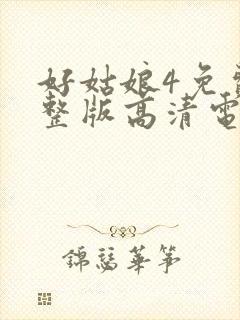 好姑娘4免
整版高清電
錦瑟華箏